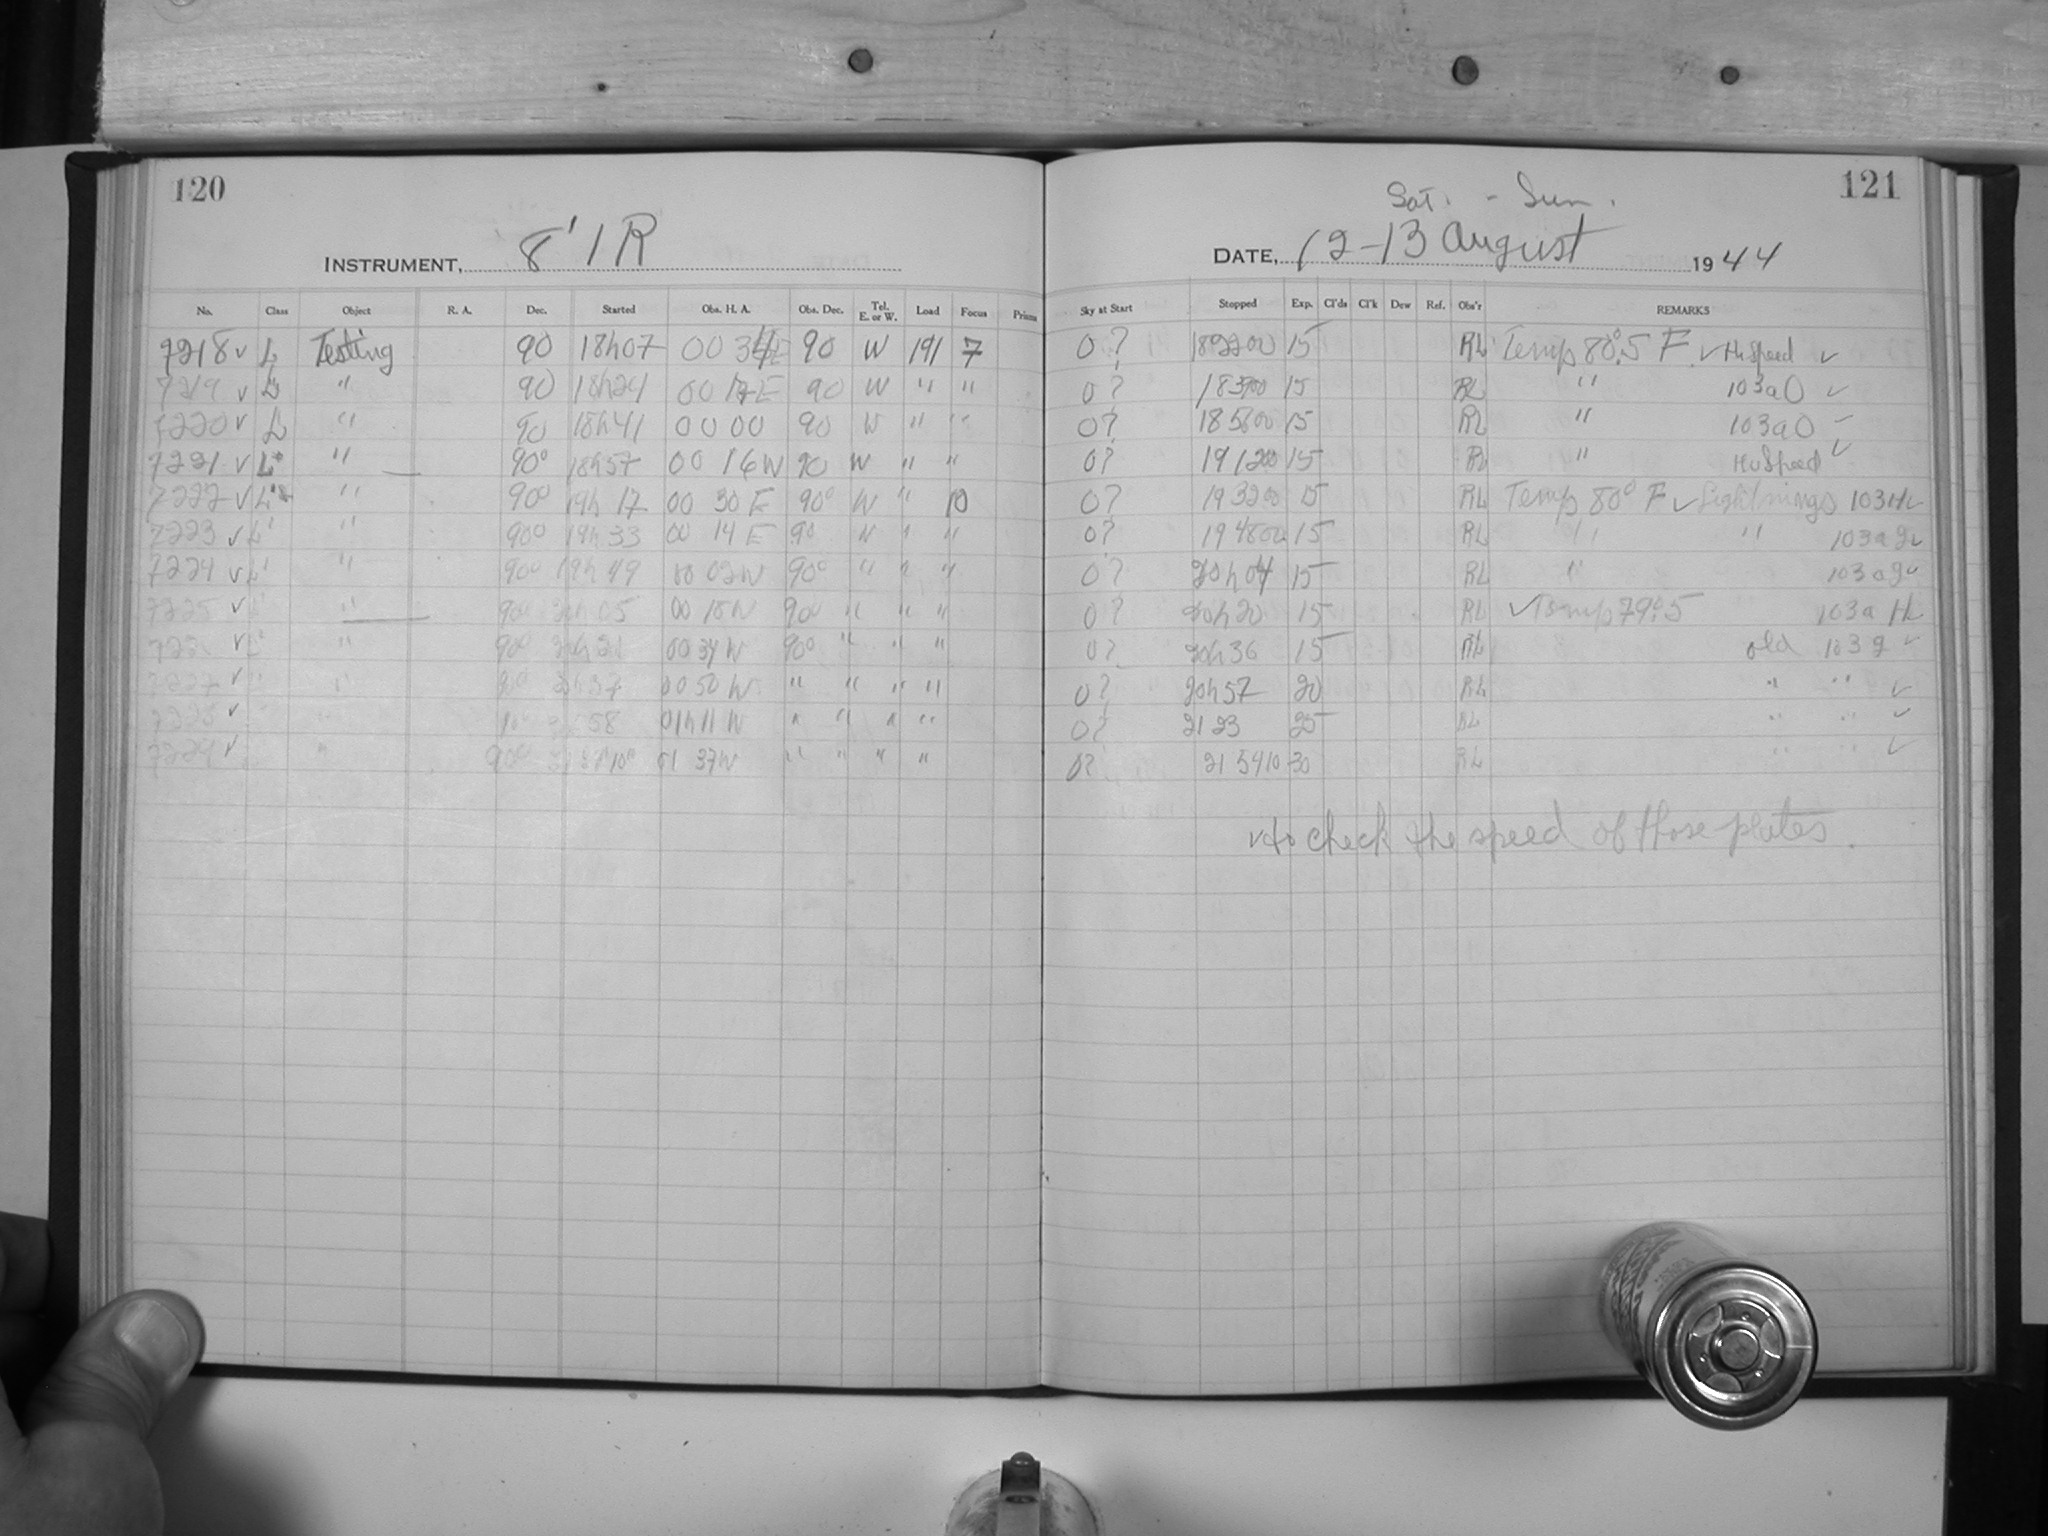 120
121
Sat. - Sun.
INSTRUMENT, 8" I R
DATE, 12-13 August 1944
No. Class Object R. A. Dec. Started Obs. H. A. Obs. Dec. Tel. E. or W. Load Focus Prisms Sky at Start Stopped Exp. Cl'ds Cl'k Dew Ref. Obs'r REMARKS
7218 ✓ L Testing 90 18h07 00 34E 90 W 191 7 0? 182200 15 RL Temp 80°.5 F. ✓ Hi Speed ✓
7219 ✓ L " 90 18h24 00 17E 90 W " " 0? 183900 15 RL " 103aO ✓
7220 ✓ L " 90 18h41 00 00 90 W " " 0? 185600 15 RL " 103aO ✓
7221 ✓ L " 90° 18h57 00 16W 90 W " " 0? 191200 15 RL " Hi Speed ✓
7222 ✓ L " 90° 19h 17 00 30 E 90° W " 10 0? 193200 15 RL Temp 80° F ✓ Lightnings 103
7223 ✓ L " 90° 19h 33 00 14 E 90 " " " 0? 194800 15 RL " " 103a
7224 ✓ L " 90° 19h 49 00 02W 90° " " " 0? 20h04 15 RL " 103a
7225 ✓ L " 90° 20h 05 00 18W 90° " " " 0? 20h20 15 RL ✓ Temp 79°.5 103a
✓ L " 90° 20h 21 00 34W 90° " " " 0? 20h36 15 RL old 103
7227 ✓ " " 90° 20h37 00 50 W " " " " 0? 20h57 20 RL " " ✓
✓ 58 01h11 W " " " " 0? 21 23 25 RL " " ✓
7229 ✓ " 90° 01 37W " " " " 0? 21 5410 30 RL " " ✓
to check the speed of those plates.